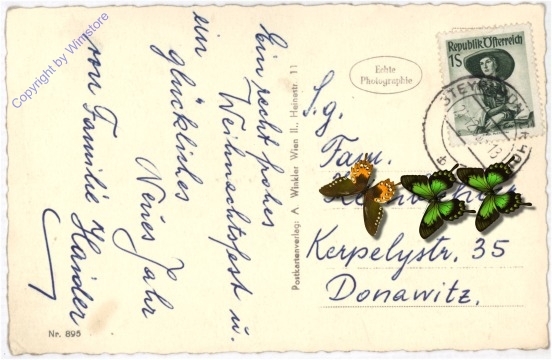 Ein recht frohes
Weihnachtsfest u.
ein glückliches
Neues Jahr
von Familie Haider
Echte
Photographie
Republik Österreich
1S
S.g.
Fam.
Kerpelystr. 35
Donawitz.
Postkartenverlag: A Winkler Wien II., Heinestr. 11
Nr. 895
Copyright by Wimstore